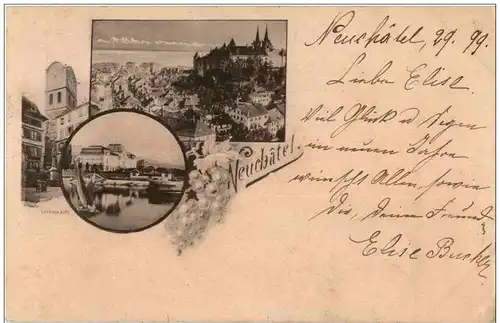 Neuchâtel, 29. 99.
Liebe Elise.
Viel Glück u Segen
im neuen Jahre
wünscht Allen, sowie
Dir, Deine Freund
Elise Bucher
Neuchâtel.